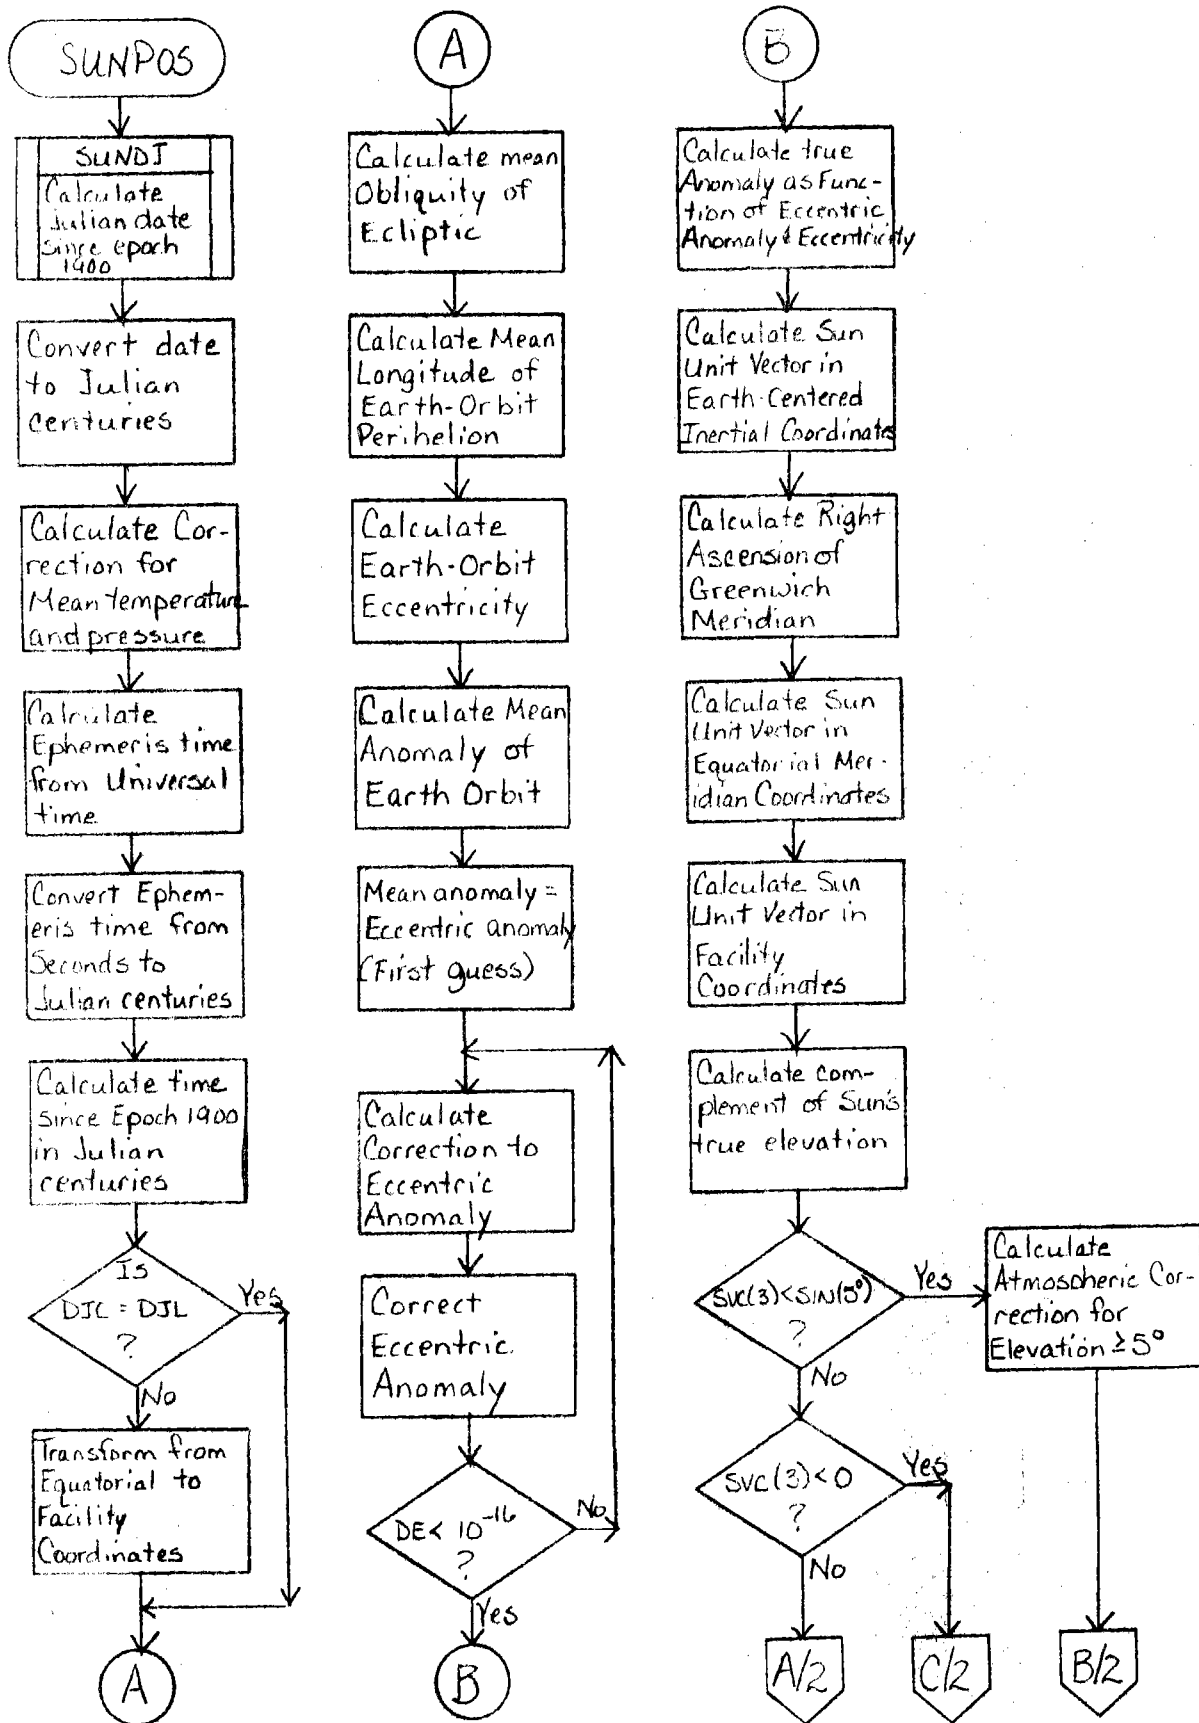 SUNPOS
SUNDJ
Calculate
Julian date
since epoch
1900
Convert date
to Julian
centuries
Calculate Cor-
rection for
Mean temperature
and pressure
Calculate
Ephemeris time
from Universal
time
Convert Ephem-
eris time from
Seconds to
Julian centuries
Calculate time
since Epoch 1900
in Julian
centuries
Is
DJC = DJL
?
Yes
No
Transform from
Equatorial to
Facility
Coordinates
A
A
Calculate mean
Obliquity of
Ecliptic
Calculate Mean
Longitude of
Earth-Orbit
Perihelion
Calculate
Earth-Orbit
Eccentricity
Calculate Mean
Anomaly of
Earth Orbit
Mean anomaly =
Eccentric anomaly
(First guess)
Calculate
Correction to
Eccentric
Anomaly
Correct
Eccentric
Anomaly
DE < 10⁻¹⁶
?
No
Yes
B
B
Calculate true
Anomaly as Func-
tion of Eccentric
Anomaly & Eccentricity
Calculate Sun
Unit Vector in
Earth-Centered
Inertial Coordinates
Calculate Right
Ascension of
Greenwich
Meridian
Calculate Sun
Unit Vector in
Equatorial Mer-
idian Coordinates
Calculate Sun
Unit Vector in
Facility
Coordinates
Calculate com-
plement of Sun's
true elevation
SVC(3) < SIN(5°)
?
Yes
No
Calculate
Atmospheric Cor-
rection for
Elevation ≥ 5°
SVC(3) < 0
?
Yes
No
A/2
C/2
B/2